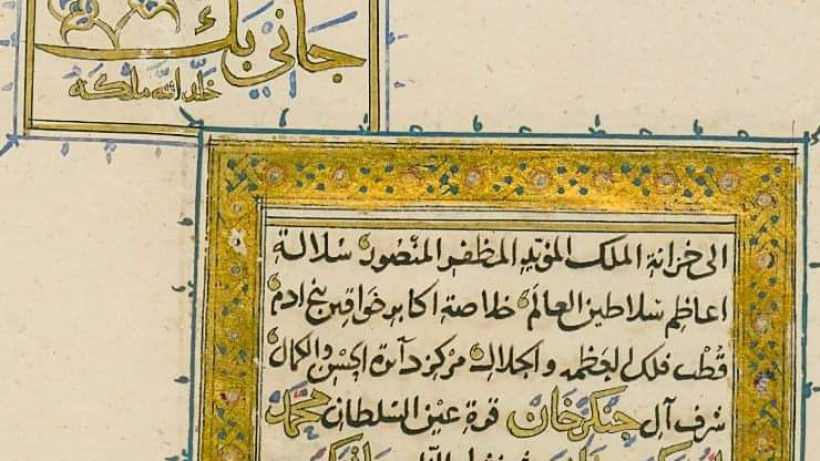 جاني بك
خلد الله ملكه
الى خزانة الملك المؤيد المظفر المنصور سلالة
اعاظم سلاطين العالم خلاصة اكابر خواقين بني ادم
قطب فلك العظمة والجلال مركز دآئرة الحسن والكمال
شرف آل جنكز خان قرة عين السلطان محمد